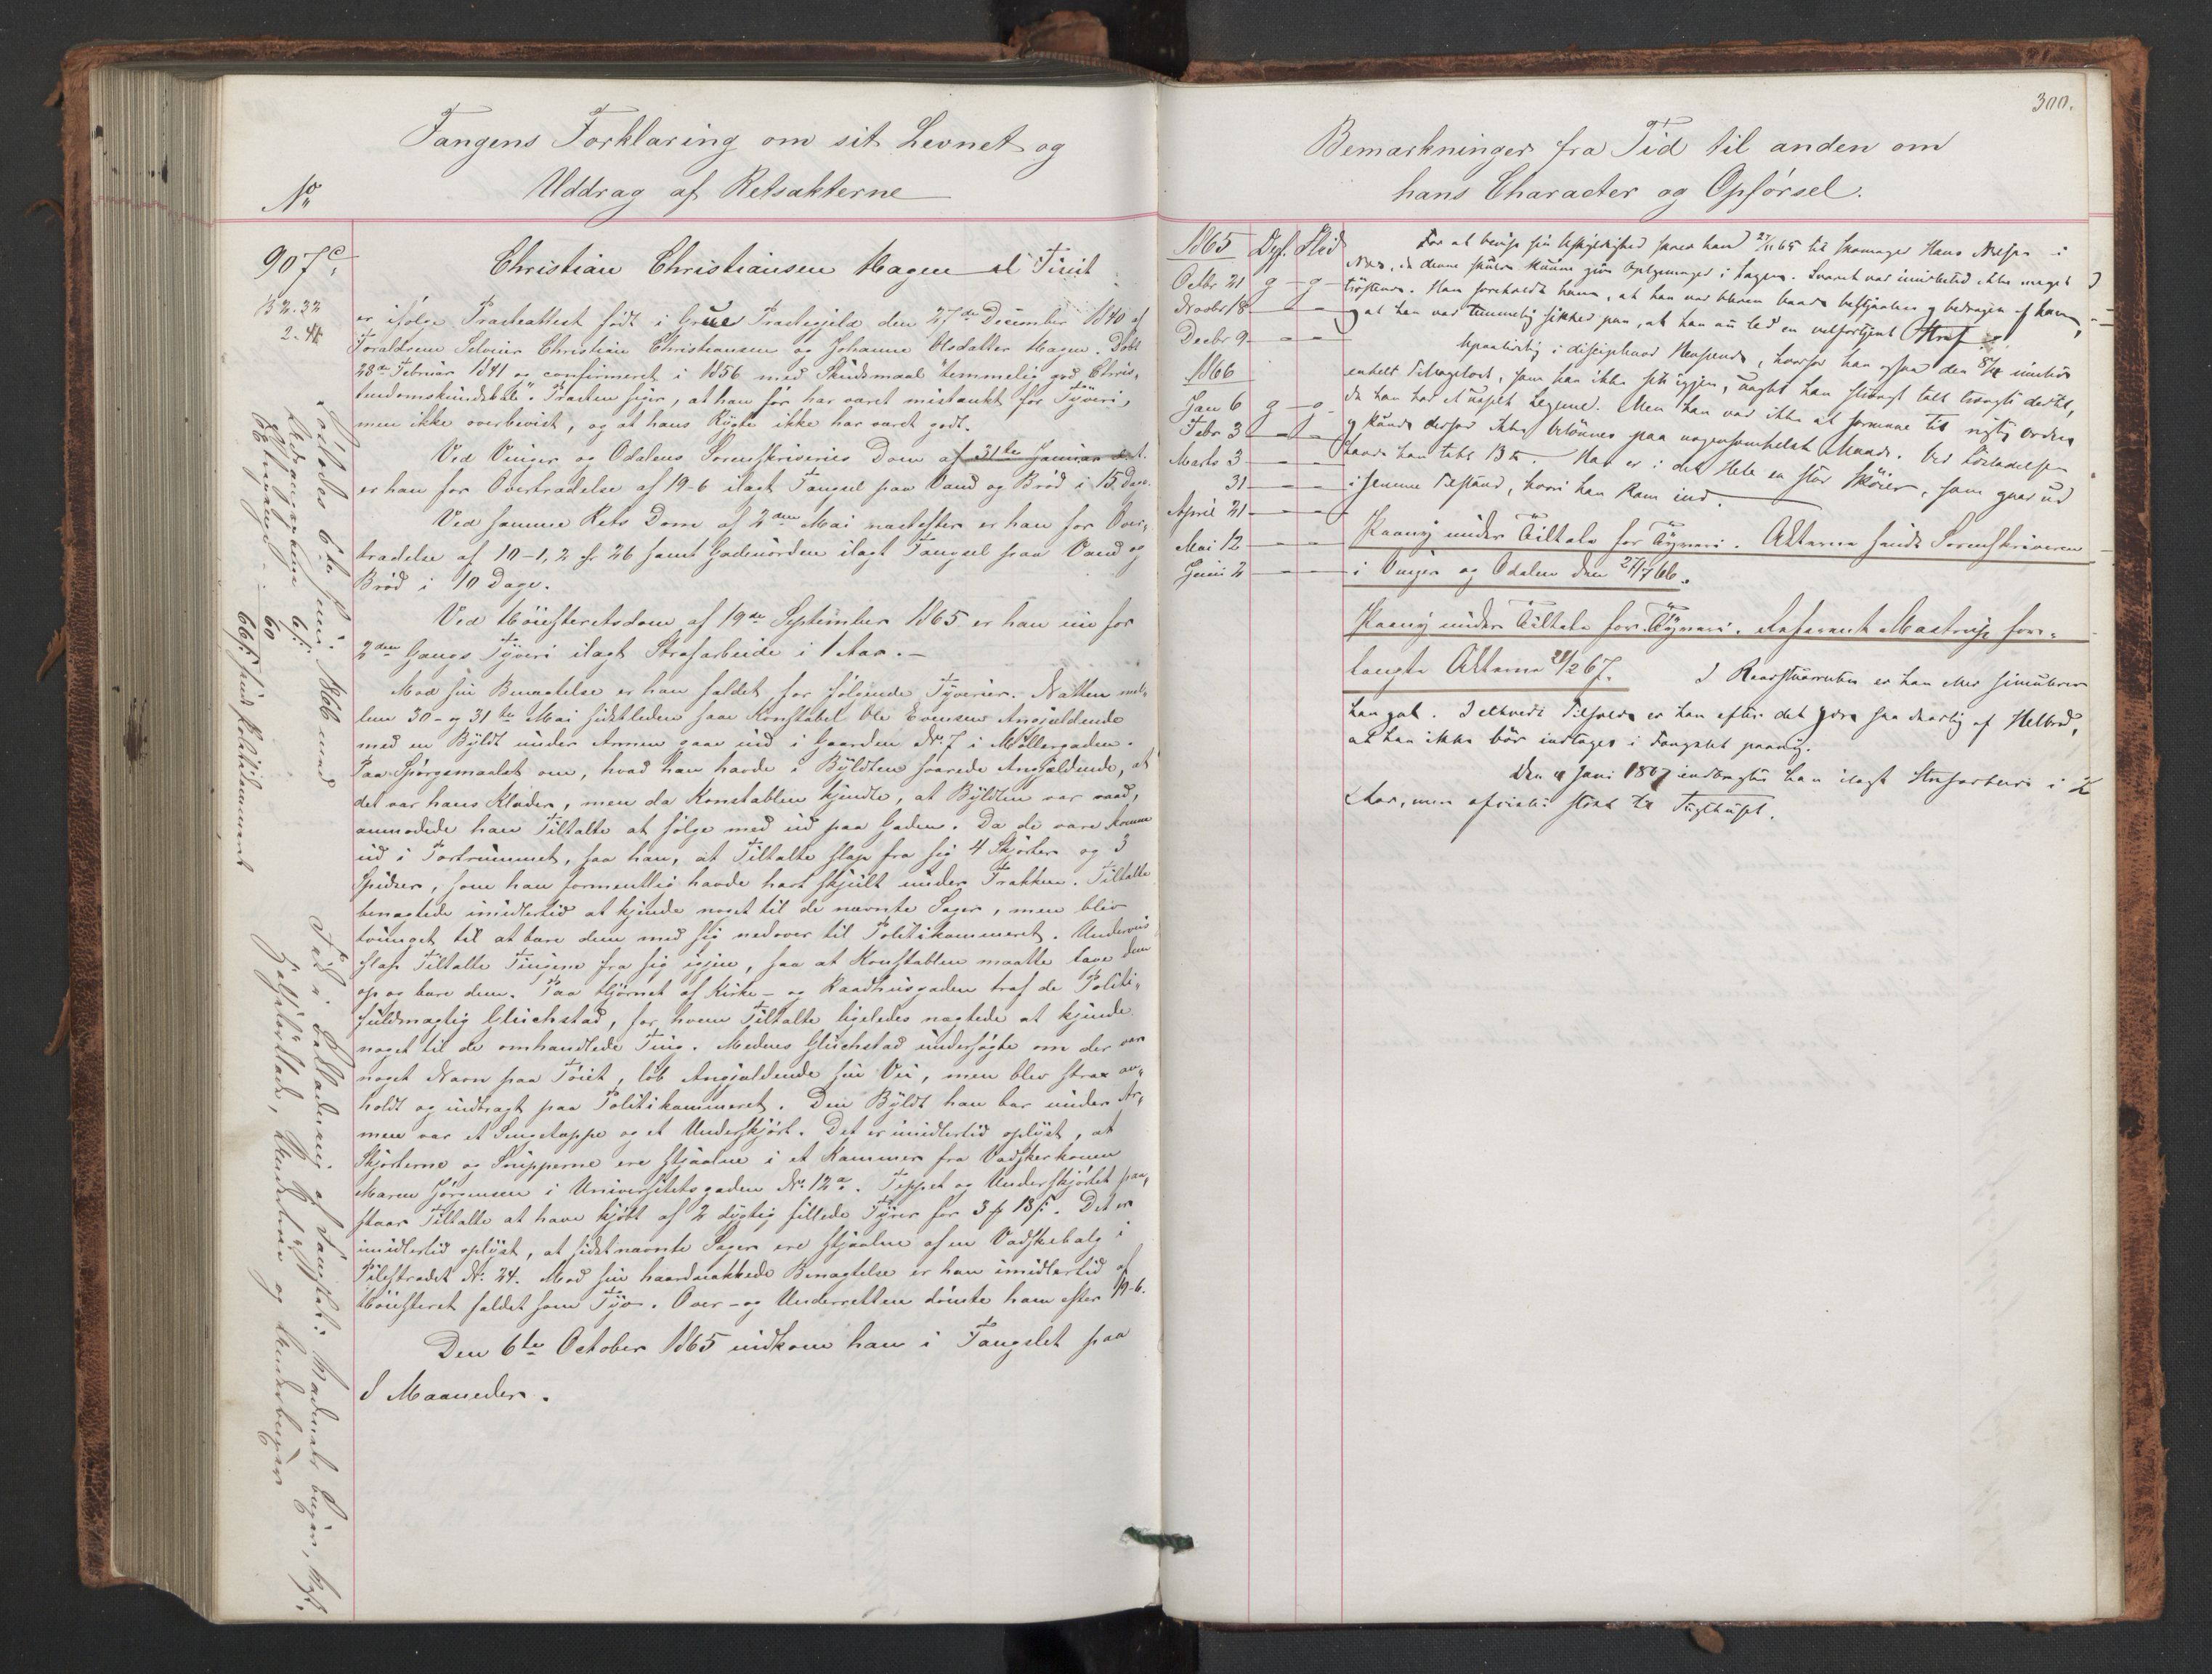 Fangens Forklaring om sit Levnet og
Uddrag af Retsakterne
No
907c
Christian Christiansen Hagen el Tisit
er ifølge Præsteattest født i Grue Præstegjeld den 27de December 1840 af
Forældrene Christian Christiansen og Johanne Olsdatter Hagen. Døbt
28de Februar 1841 og confirmeret i 1856 med Skudsmaal "temmelig god Chris-
tendomskundskab". Præsten siger, at han før har været mistænkt for Tyveri,
men ikke overbevist, og at hans Rygte ikke har været godt.
Ved Vinger og Odalens Sorenskriveries Dom af 31te Januar
er han for Overtrædelse af 19-6 ilagt Fængsel paa Vand og Brød i 15 Dage.
Ved samme Rets Dom af 2den Mai næstefter er han for Over-
trædelse af 10-1,2 jfr 26 samt Gadeuorden ilagt Fængsel paa Vand og
Brød i 10 Dage.
Ved Høiesteretsdom af 19de September 1865 er han nu for
2den Gangs Tyveri ilagt Strafarbeide i 1 Aar.
Mod sin Benægtelse er han fældet for følgende Tyverier. Natten mel-
lem 30- og 31te Mai sidstleden saa Konstabel Ole Evensen Angjældende
med en Byldt under Armen gaae ind i Gaarden No. 7 i Møllergaden.
Paa Spørgsmaalet om, hvad han havde i Byldten svarede Angjældende, at
det var hans Klæder, men da Konstablen kjendte, at Byldten var vaad,
anmodede han Tiltalte at følge med ud paa Gaden. Da de vare komne
ud i Portrummet, saa han, at Tiltalte slap fra sig 4 Skjorter og 3
som han formentlig havde havt skjult under Frakken. Tiltalte
benægtede imidlertid at kjende noget til de nævnte Sager, men blev
tvunget til at bære dem med sig nedover til Politikammeret. Underveis
slap Tiltalte Tingene fra sig igjen, saa at Konstablen maatte tage dem
op og bære dem. Paa Hjørnet af Kirke- og Raadhusgaden traf de Politi-
fuldmægtig Gluckstad, for hvem Tiltalte ligeledes nægtede at kjende
noget til de omhandlede Ting. Medens Gluckstad undersøgte om der var
noget Navn paa Tøiet, løb Angjældende sin Vei, men blev strax an-
holdt og indbragt paa Politikammeret. Den Byldt han bar under Ar-
men var et Sengetæppe og et Underskjørt. Det er imidlertid oplyst, at
Skjorterne og Snipperne ere stjaalne i et Kammer fra Vadskerkonen
Maren Jørgensen i Universitetsgaden No. 12a. Teppet og Underskjørtet paa-
staar Tiltalte at have kjøbt af 2 dygtig fillede Fyrer for 3 18 s. Det er
imidlertid oplyst, at sidstnævnte Sager ere stjaalne af en Vadskebalg i
Pilestrædet No. 24. Mod sin haardnakkede Benægtelse er han imidlertid af
Høiesteret fældet som Tyv. Over- og Underretten dømte ham efter 19-6.
Den 6te October 1865 indkom han i Fængslet paa
8 Maaneder.
Løslades 6te Juni 1866 med
300.
Bemærkninger fra Tid til anden om
hans Character og Opførsel.
1865 Opf. Flid
Octbr 21 g – g
Novbr 18 – –
Decbr 9 – –
1866
Jan 6 g – g
Febr 3 – –
Marts 3 – –
31 – –
April 21 – –
Mai 12 – –
Juni 2 – –
For at bevise sin Uskyldighed skrev han 27/11 65 til Skomager Hans
da denne skulde kunne give Oplysninger i Sagen. Svaret var imidlertid ikke meget
trøstende. Han foreholdt ham, at han var bleven baade bestjaalen og bedragen af ham,
og at han var temmelig sikker paa, at han nu led en velfortjent Straf.
Upaalidelig i disciplinær Henseende, hvorfor han ogsaa den
enkelt som han ikke fik igjen, uagtet han trængte dertil,
da han har et Legeme. Men han var ikke at formane til rigtig Orden
og kunde derfor ikke belønnes paa nogensomhelst Maade. Ved Løsladelsen
Han er i det Hele en stor Skøier, som gaar ud
i samme Tilstand, hvori han kom ind.
Paany under Tiltale for Tyveri. Akterne sendt Sorenskriveren
i Vinger og Odalen den 27/7 66.
Paany under Tiltale for Tyveri. Referent Mastrup for-
langte Akterne 21/2 67.
han gal. I ethvert Tilfælde er han efter det saa daarlig af Helbred,
at han ikke bør indtages i Fængslet paany.
Den 4 Juni 1867 indbragtes han ilagt Strafarbeide i 2
Aar, men strax til Tugthuset.